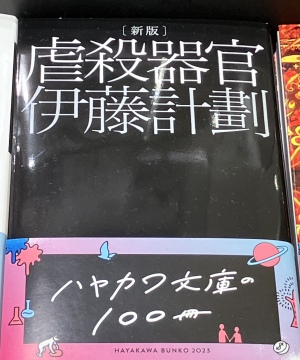 ［新版］
虐殺器官
伊藤計劃
ハヤカワ文庫の
100冊
HAYAKAWA BUNKO 2023